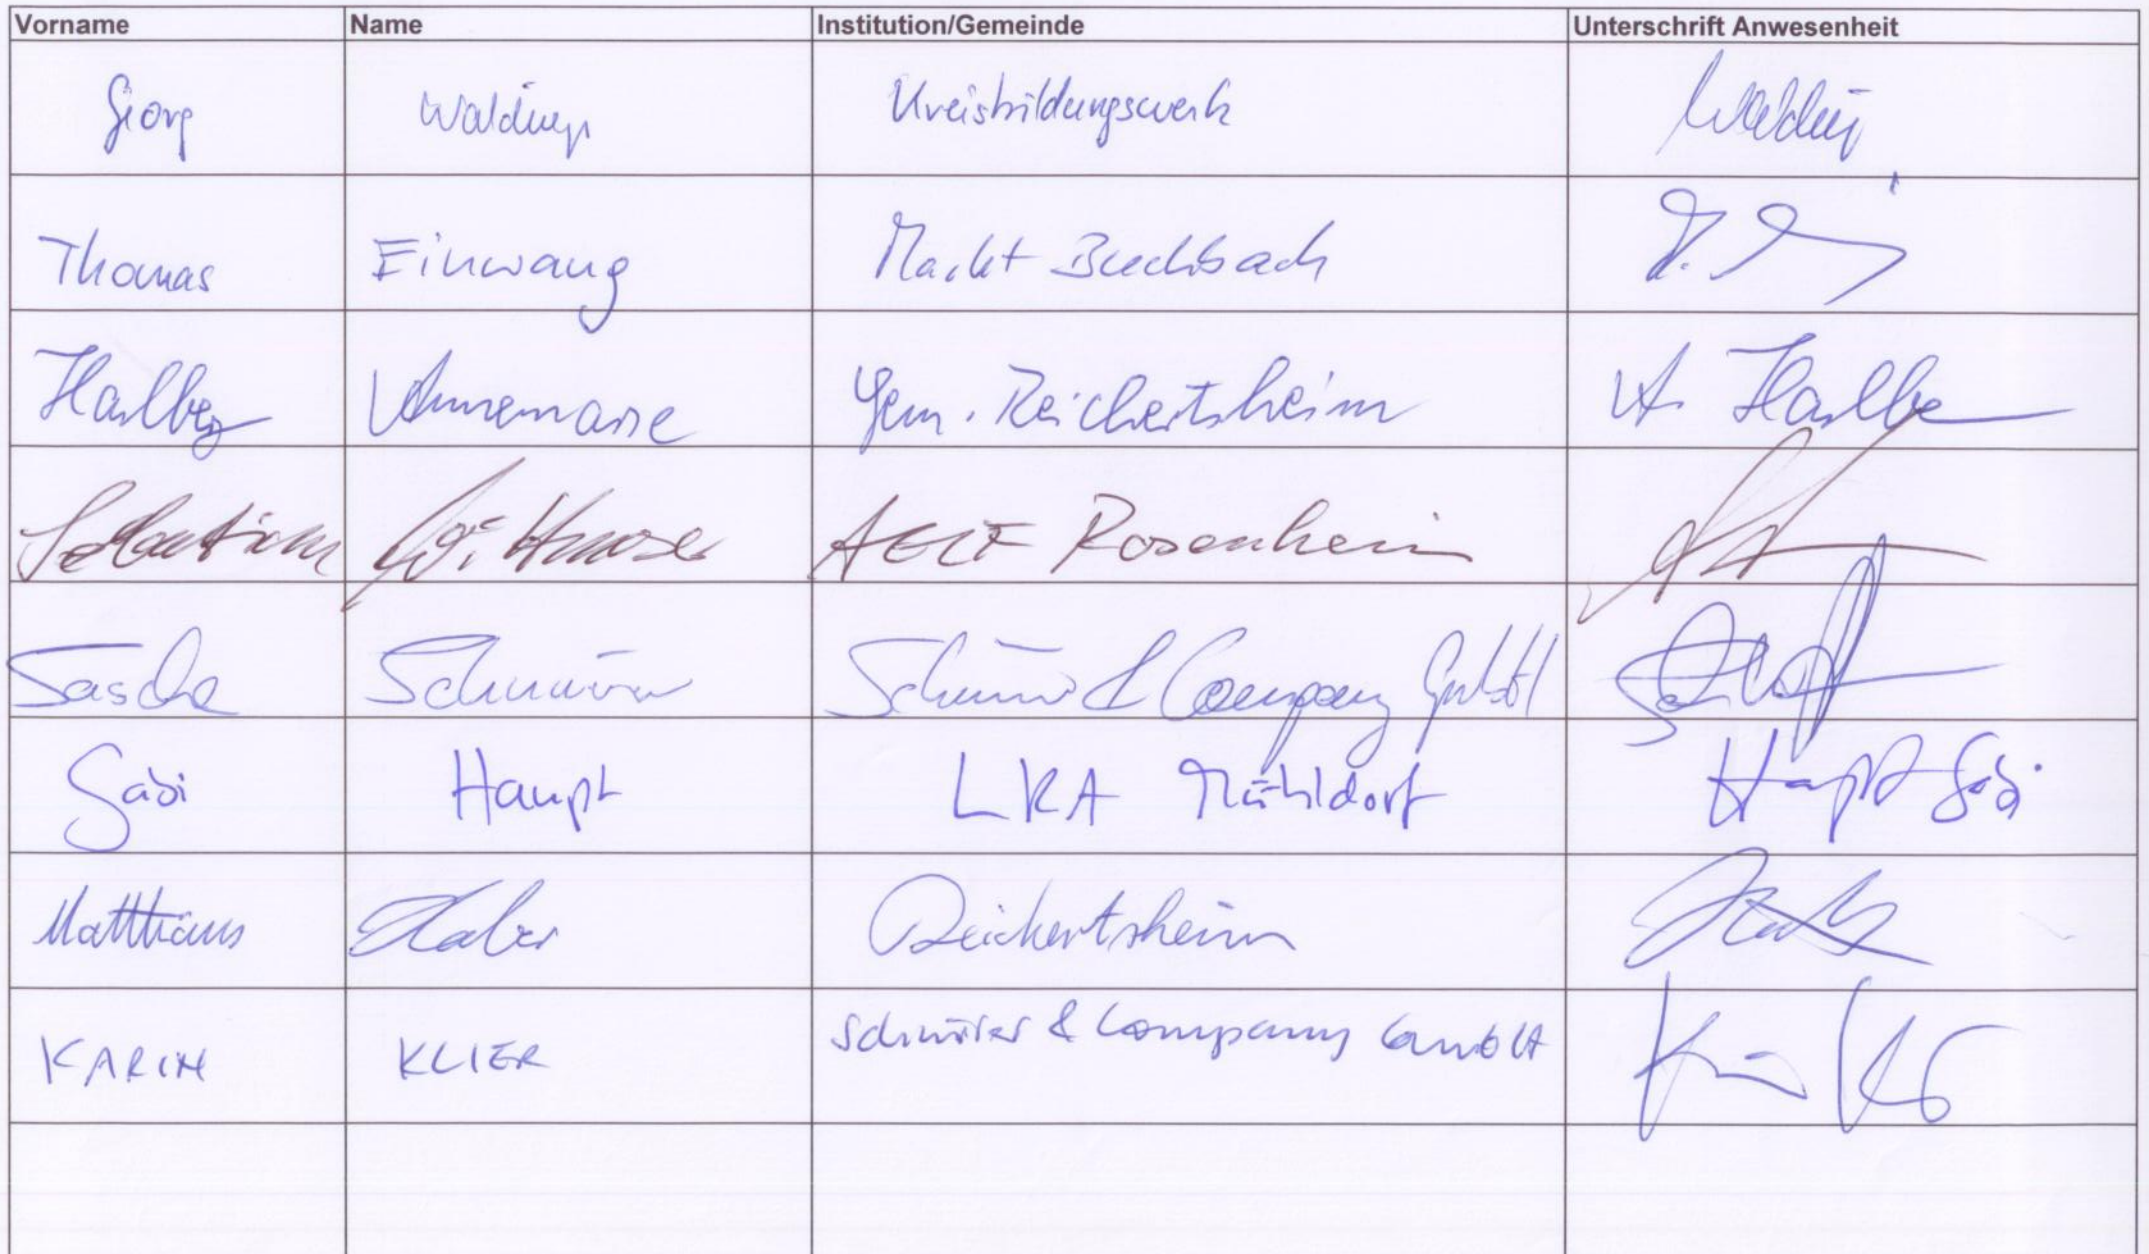 Vorname Name Institution/Gemeinde Unterschrift Anwesenheit
Georg Kreisbildungswerk
Thomas Einwang Markt Buchbach
Annemarie Gem. Reichertsheim
Sebastian AELF Rosenheim
Sascha Schnürer Schnürer & Company GmbH
Gabi Haupt LRA Mühldorf Haupt Gabi
Matthäus Reichertsheim
KARIN KLIER Schnürer & Company GmbH